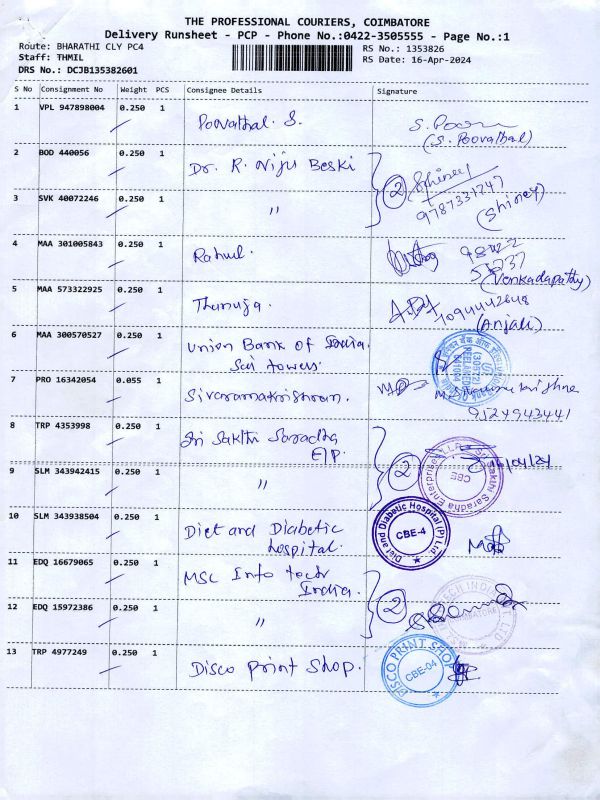 THE PROFESSIONAL COURIERS, COIMBATORE
Delivery Runsheet - PCP - Phone No.:0422-3505555 - Page No.:1
Route: BHARATHI CLY PC4
Staff: THMIL
DRS No.: DCJB135382601
RS No.: 1353826
RS Date: 16-Apr-2024
S No Consignment No Weight PCS Consignee Details Signature
1 VPL 947898004 0.250 1 Poovathal. S. S. Poo
(S. Poovathal)
2 BOD 440056 0.250 1 Dr. R. Niju Beski 2 Shiney
9787331247
3 SVK 40072246 0.250 1 〃 (Shiney)
4 MAA 301005843 0.250 1 Rahul.
(Venkadapathy)
5 MAA 573322925 0.250 1 Thanuja.
(Anjali)
6 MAA 300570527 0.250 1 Union Bank of India.
Sai towers.
7 PRO 16342054 0.055 1 Sivaramakrishnan.
9524943441
8 TRP 4353998 0.250 1 Sri Sakthi Saradha
E/P. 2 16/04/24
Sri Sakthi Saradha Enterprises LLP
CBE
9 SLM 343942415 0.250 1 〃
10 SLM 343938504 0.250 1 Diet and Diabetic
hospital.
Diet and Diabetic Hospital (P) Ltd.
CBE-4
11 EDQ 16679065 0.250 1 MSC Info tech
India. 2
12 EDQ 15972386 0.250 1 〃
13 TRP 4977249 0.250 1 Disco Print Shop.
DISCO PRINT SHOP
CBE-04